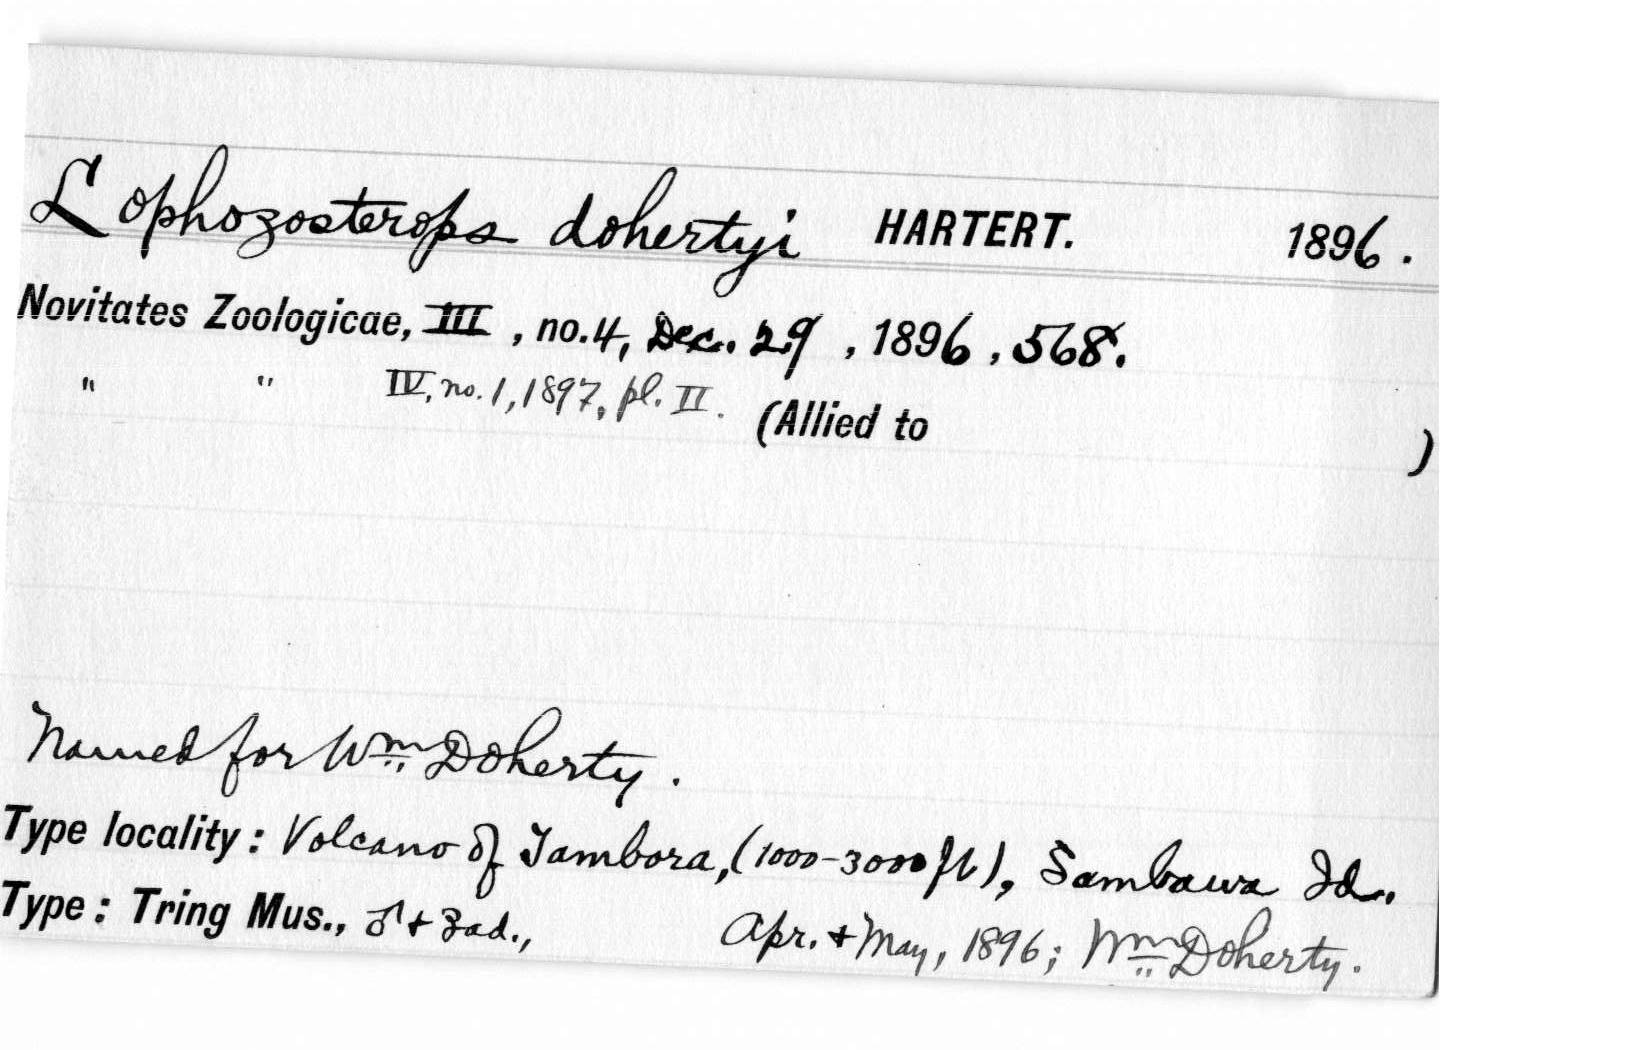 Lophozosterops dohertyi HARTERT. 1896.
Novitates Zoologicae, III, no. 4, Dec. 29, 1896, 568.
" " IV, no. 1, 1897, pl. II.
(Allied to )
Named for Wm. Doherty.
Type locality: Volcano of Tambora, (1000-3000 ft), Sambawa Id.
Type: Tring Mus., ♂ + ♀ ad., Apr. + May, 1896; Wm. Doherty.